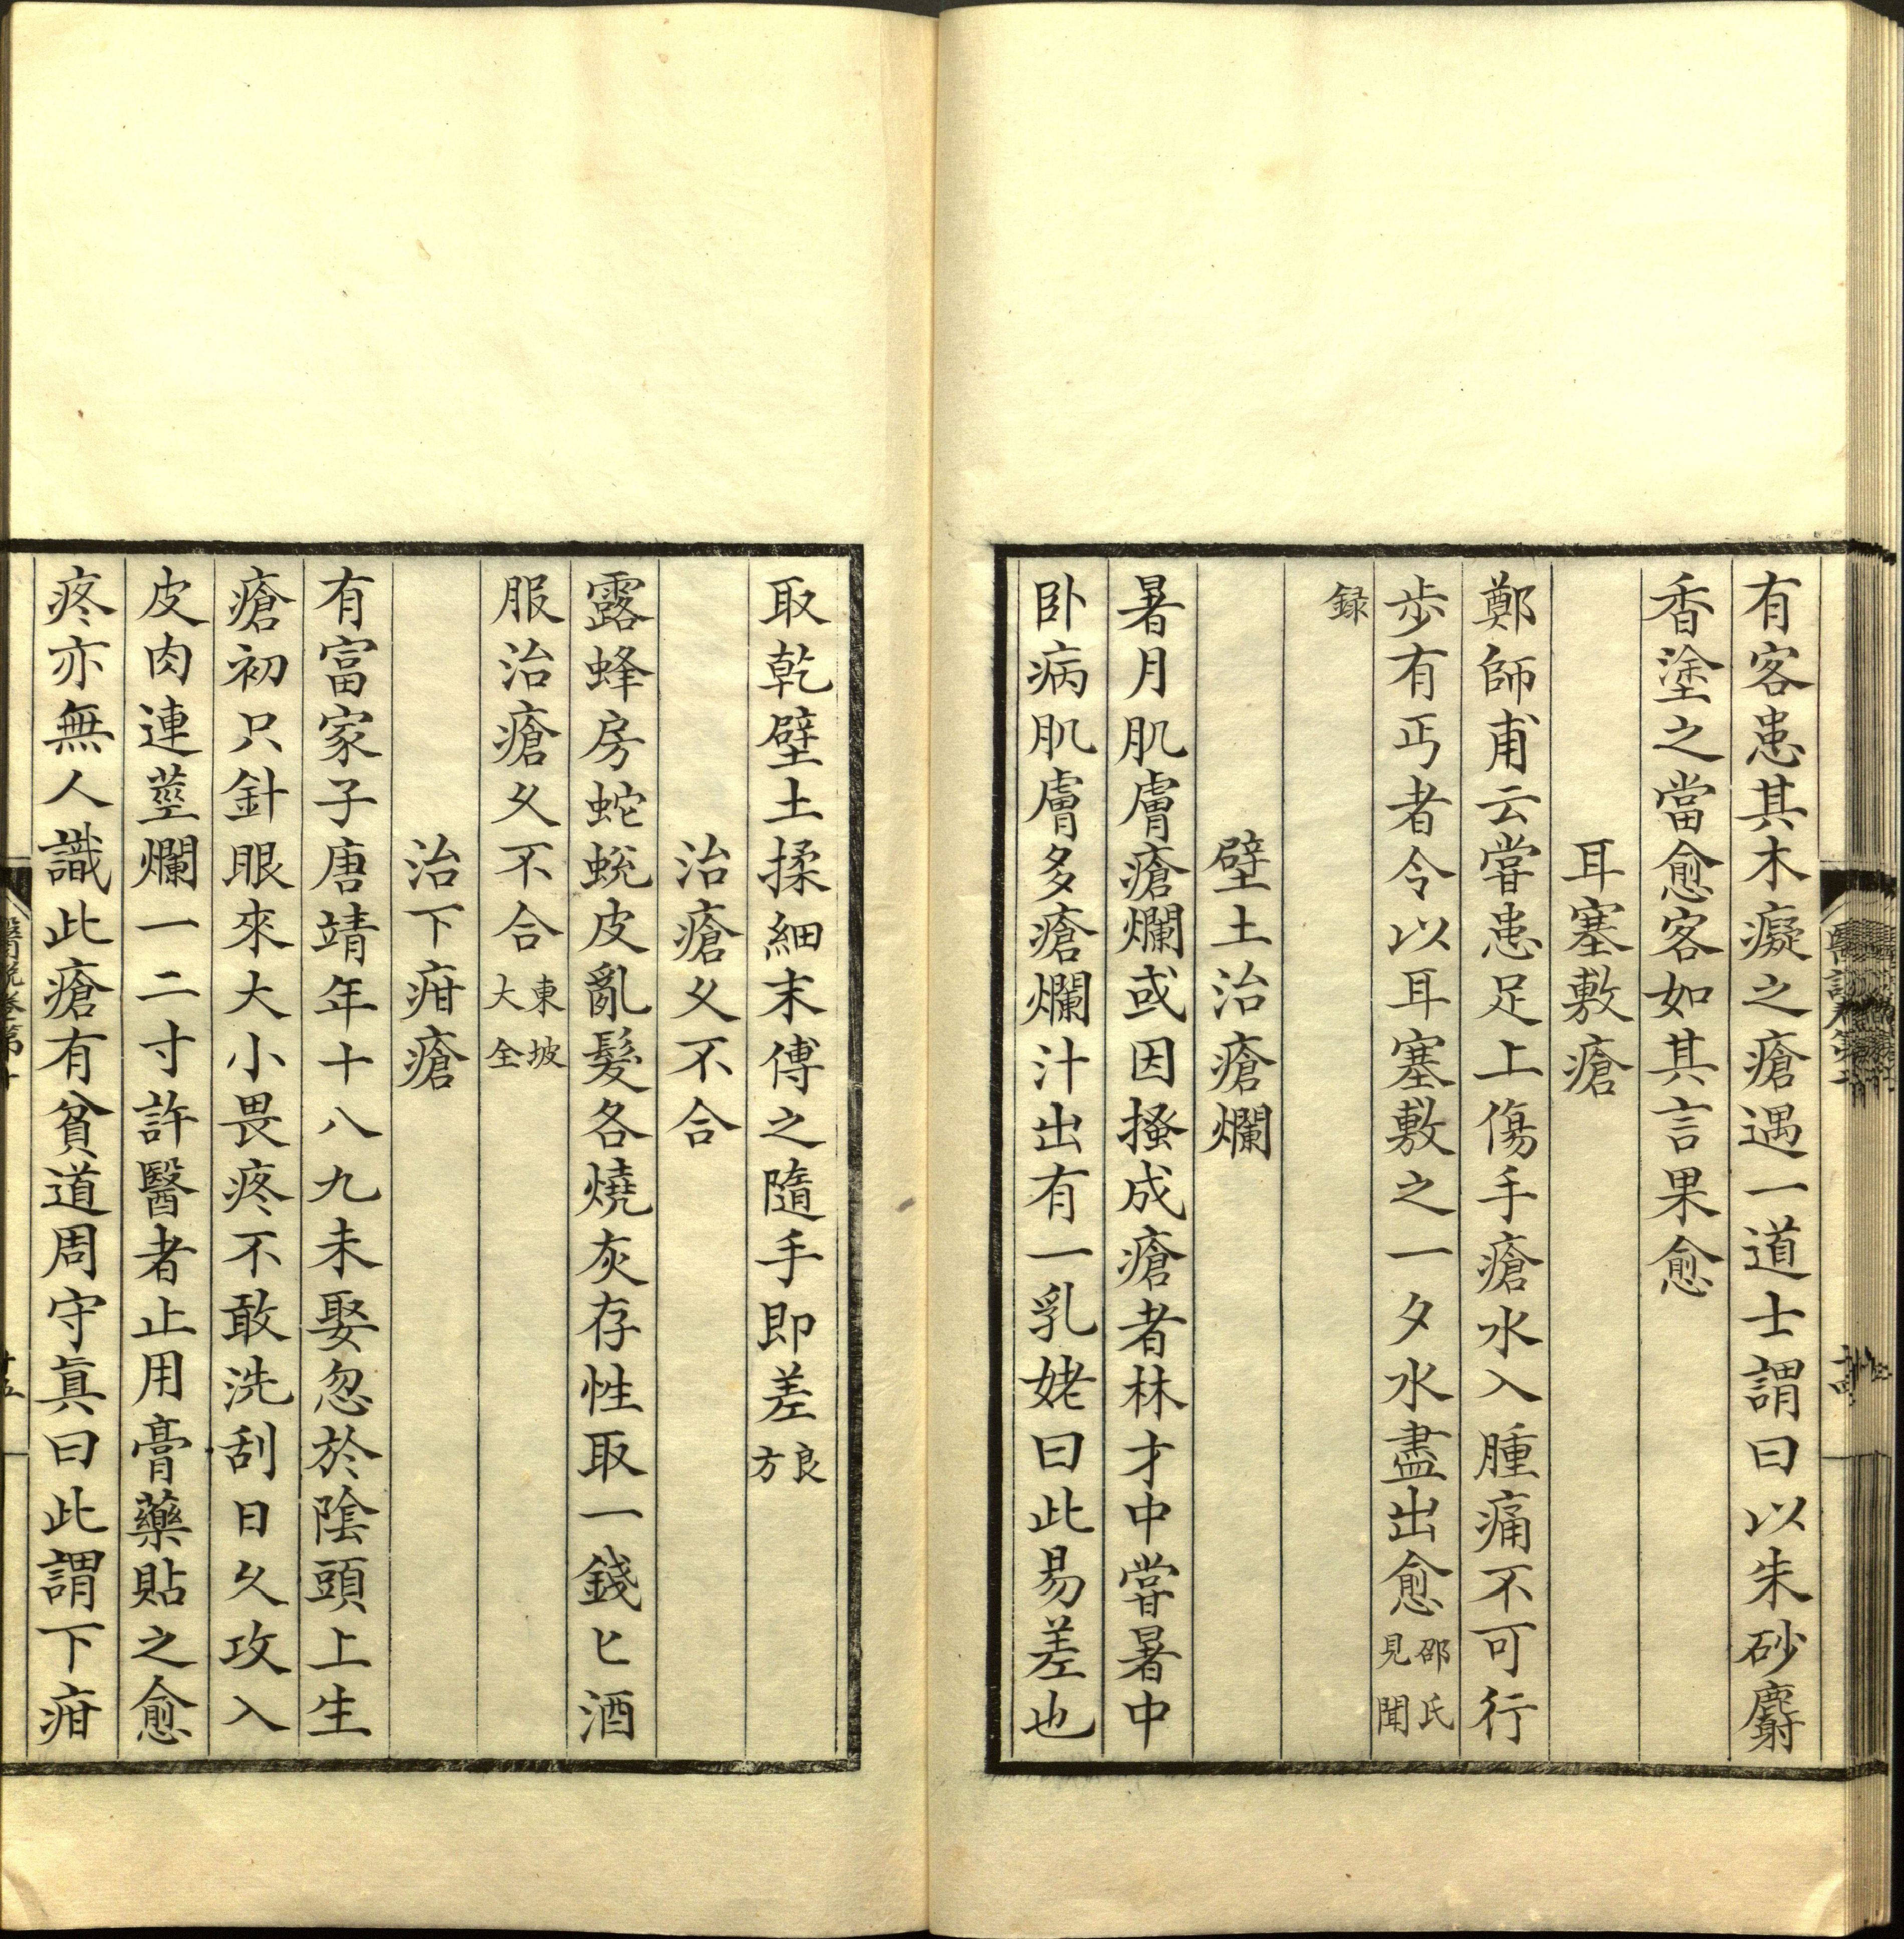 有客患其木癡之瘡遇一道士謂曰以朱砂麝
香塗之當愈客如其言果愈
耳塞敷瘡
鄭師甫云嘗患足上傷手瘡水入腫痛不可行
歩有丐者令以耳塞敷之一夕水盡出愈邵氏見聞
録
壁土治瘡爛
暑月肌膚瘡爛或因搔成瘡者林才中嘗暑中
卧病肌膚多瘡爛汁出有一乳姥曰此易差也
取乾壁土揉細末傅之隨手即差良方
治瘡久不合
露蜂房蛇蛻皮亂髮各燒灰存性取一錢匕酒
服治瘡久不合東坡大全
治下疳瘡
有富家子唐靖年十八九未娶忽於陰頭上生
瘡初只針眼來大小畏疼不敢洗刮日久攻入
皮肉連莖爛一二寸許醫者止用膏藥貼之愈
疼亦無人識此瘡有貧道周守眞曰此謂下疳
醫說卷第十
十五